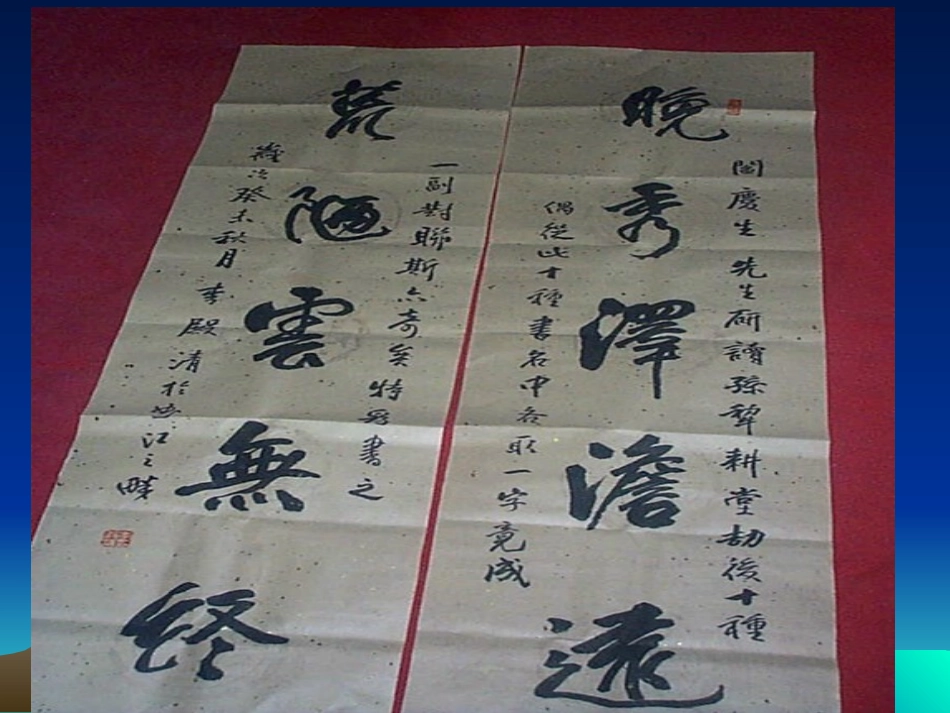 晚秀澤澹遠
閻慶生先生研讀孫犁耕堂劫後十種
偶從此十種書名中各取一字竟成
荒陋雲無終
一副對聯斯亦奇矣特爲書之
歲次癸未秋月李殿清於曲江之畔